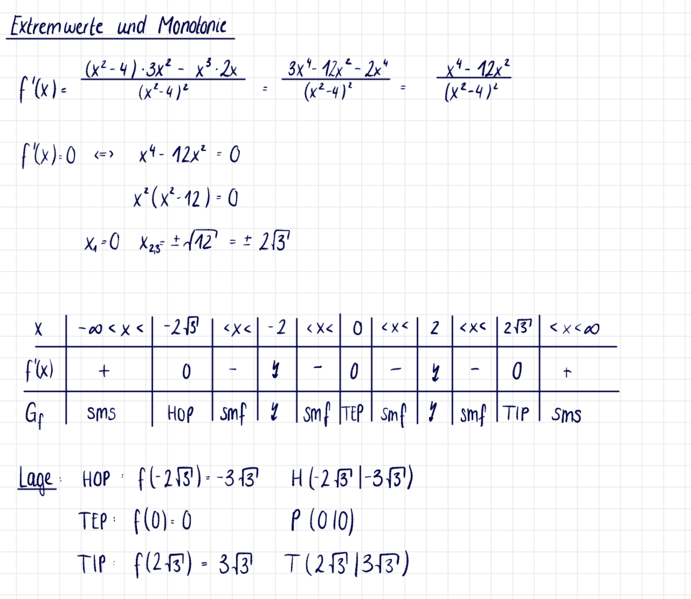 Extremwerte und Monotonie
f'(x) = ((x²-4)·3x² - x³·2x)/(x²-4)² = (3x⁴-12x²-2x⁴)/(x²-4)² = (x⁴-12x²)/(x²-4)²
f'(x)=0 <=> x⁴-12x² = 0
x²(x²-12) = 0
x₁=0 x₂,₃= ±√12 = ±2√3
x | -∞<x< | -2√3 | <x< | -2 | <x< | 0 | <x< | 2 | <x< | 2√3 | <x<∞
f'(x) | + | 0 | - | y | - | 0 | - | y | - | 0 | +
Gf | sms | HOP | smf | y | smf | TEP | smf | y | smf | TIP | sms
Lage: HOP: f(-2√3) = -3√3 H(-2√3|-3√3)
TEP: f(0) = 0 P(0|0)
TIP: f(2√3) = 3√3 T(2√3|3√3)